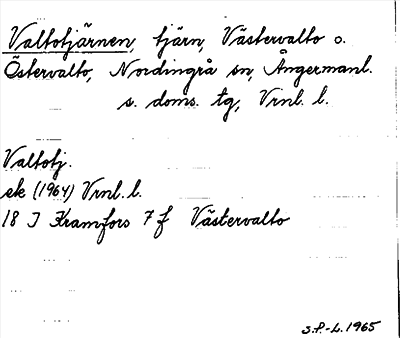 Valtotjärnen, tjärn, Västervalto o.
Östervalto, Nordingrå sn, Ångermanl.
s. doms. tg, Vrnl. l.
Valtotj.
ek (1964) Vrnl. l.
18 J Kramfors 7 f Västervalto
S.P.-L. 1965